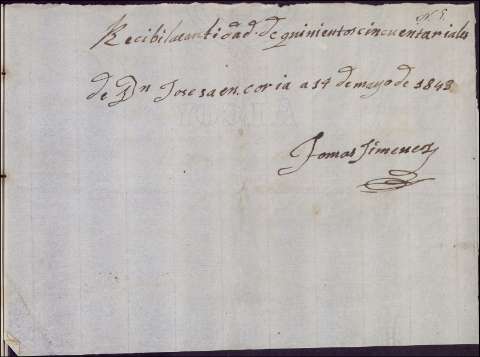 Nº 5.
Recibi la cantidad de quinientos cincuenta riales
de Dn Jose saen. coria a 14 de mayo de 1848
Tomas Jimenez